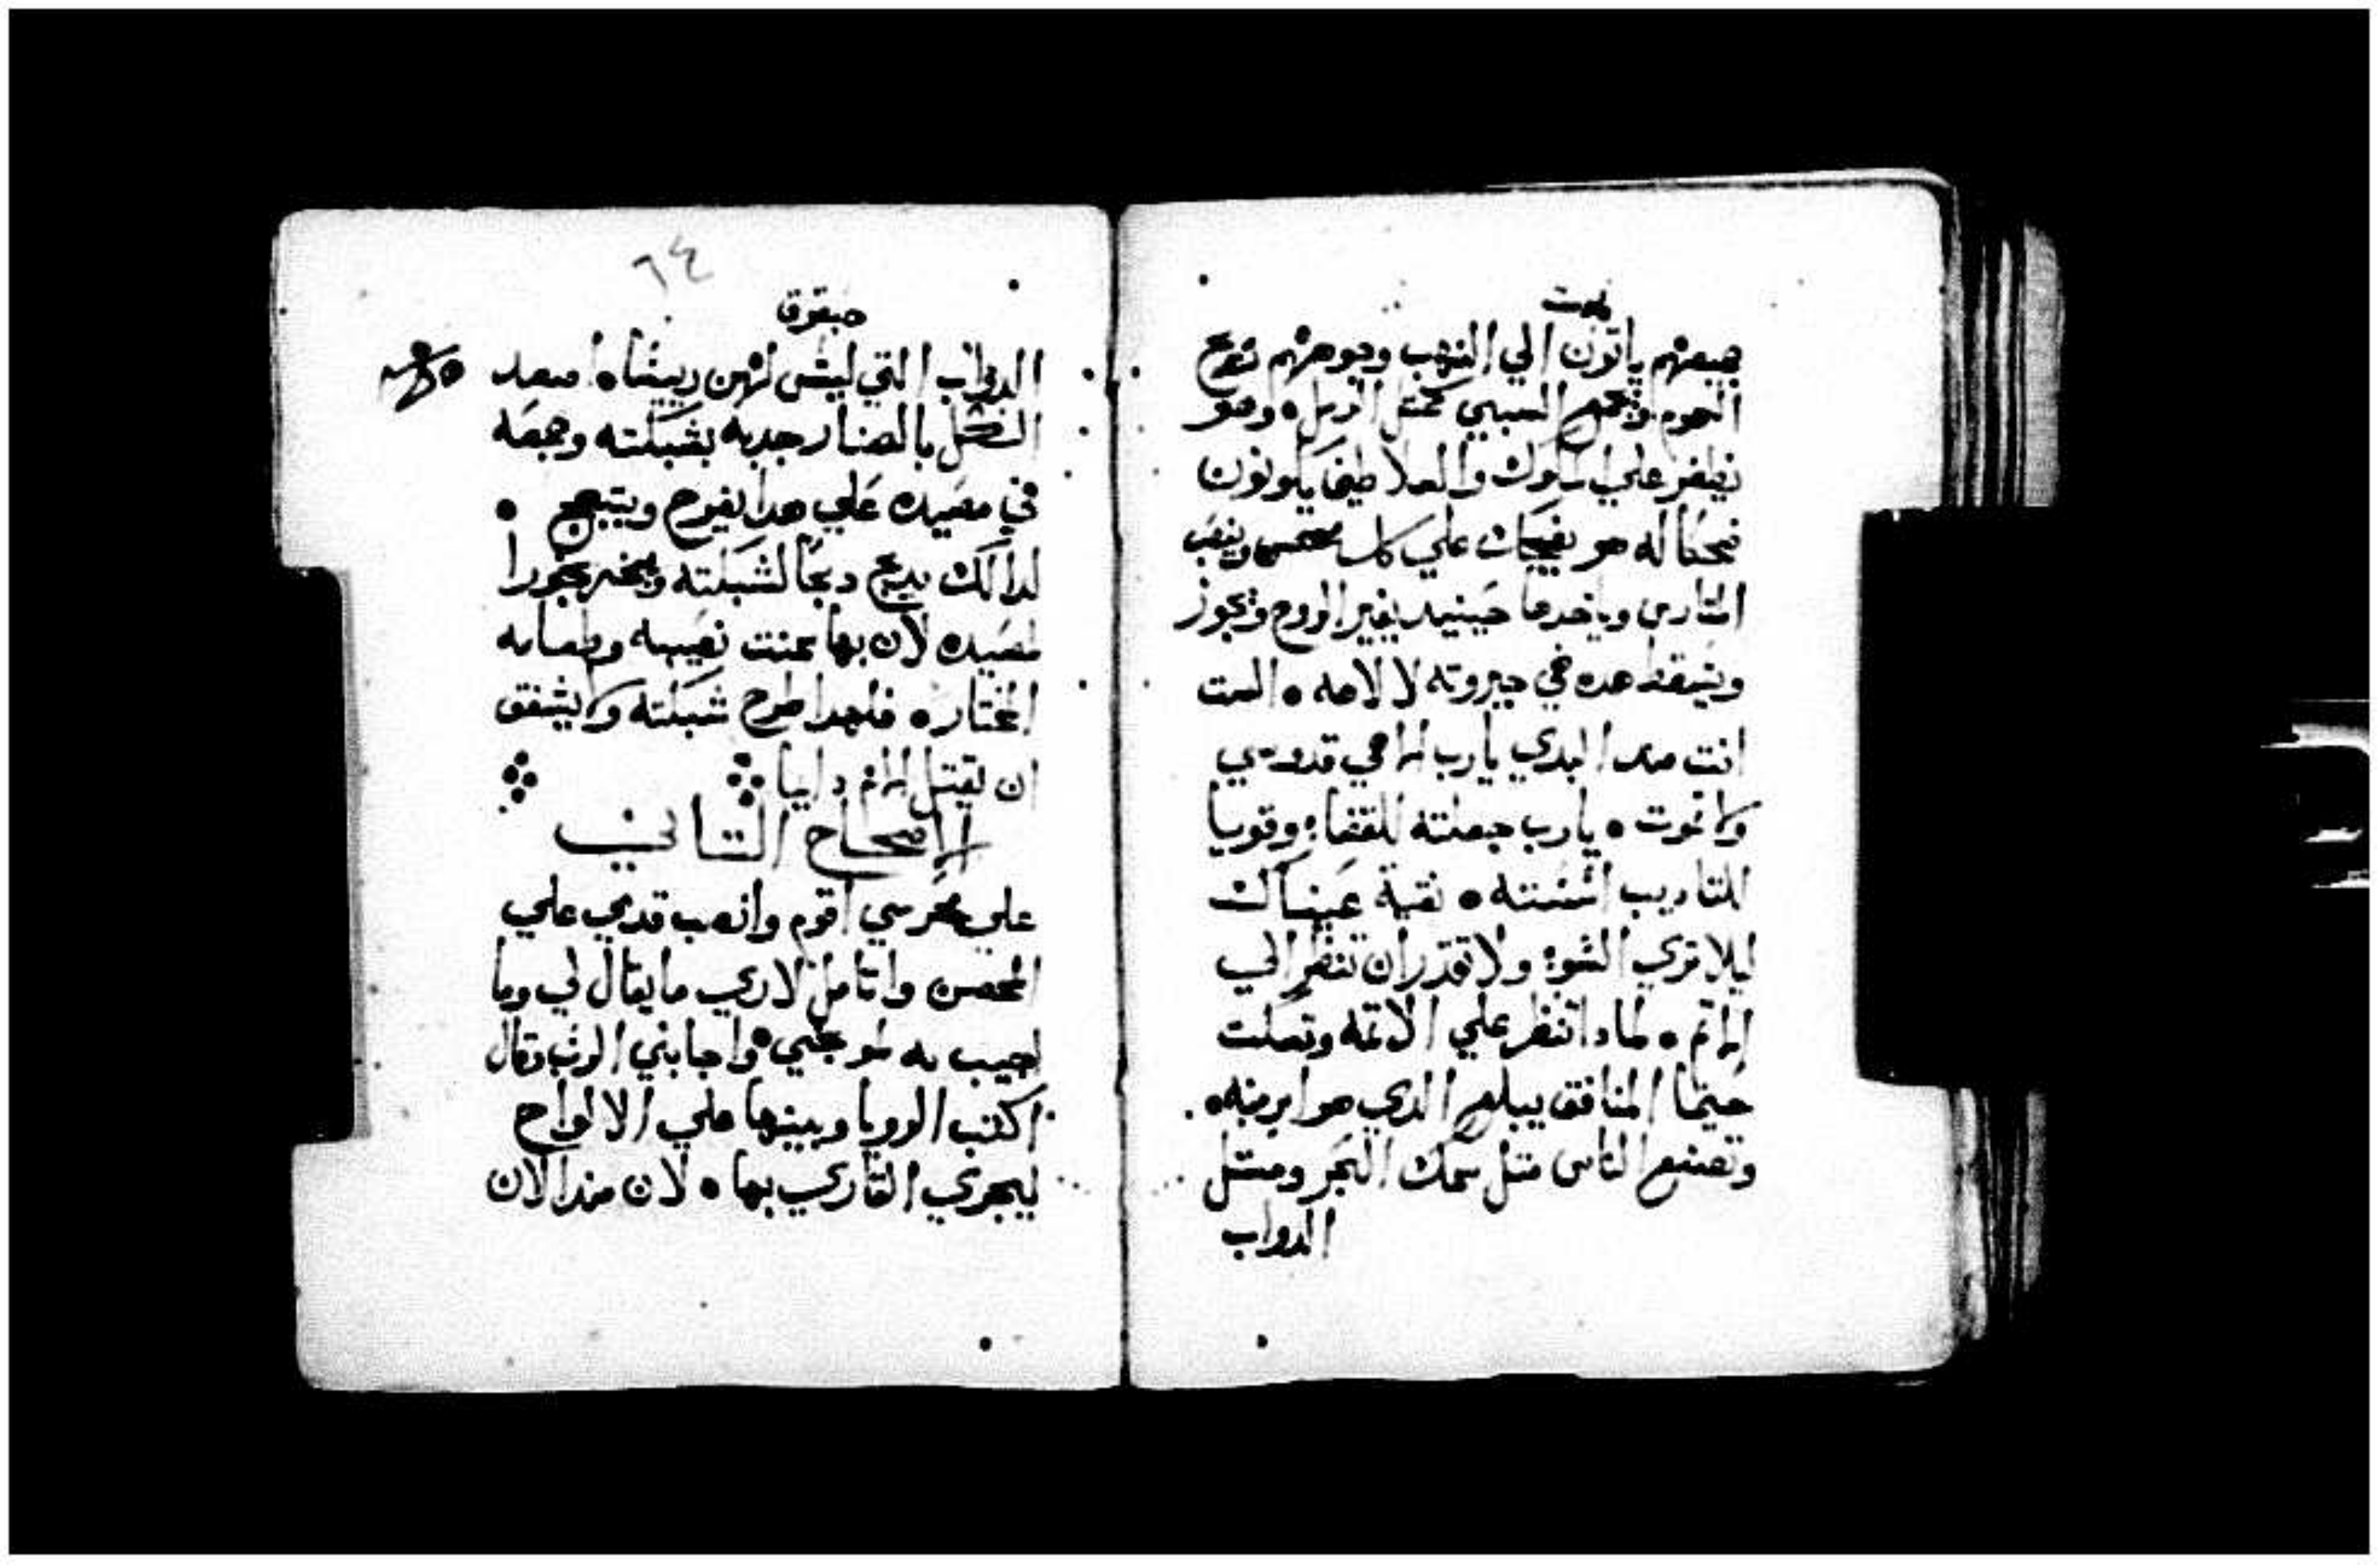 جميعهم ياتون الي النهب وجوههم نوع
السموم وتجمع السبي كمتل الرمل • وهو
يظفر علي الملوك والسلاطين يكونون
ضحكا له هو يضحك علي كل محصن وينصب
المتارس وياخدها حينيد يغير الروح وتجوز
ويسقط هده هي جبروته لالاهه • الست
انت مند البدي يارب الاهي قدوسي
ولا نموت • يارب جعلته للقضا: وقويا
للتاديب اسسته • نقية عيناك
ليلا تري الشو: ولا تقدر ان تنظر الي
الاتم • لمادا تنظر علي الاتمه وتسكت
حينما المنافق يبلع الدي هو ابر منه •
وتصنع الناس متل سمك البحر ومتل
الدواب
٦٤
حبقوق
الدواب التي ليس لهن رييسا • اصعد
الكل بالصنار جدبه بشبكته وجمعه
في مصيده علي هدا يفرح ويبتهج •
لدالك يدبح دبحا لشبكته ويبخر بخورا
لمصيده لان بها سمنت نصيبه وطعامه
المختاره • فلهدا طرح شبكته ولا يشفق
ان يقتل الامم دايما
الاصحاح التاني
علي محرسي اقوم وانصب قدمي علي
المحصن واتامل لاري ما يقال لي وما
اجيب به لموبخي • واجابني الرب وقال
اكتب الرويا وبينها علي الالواح
ليجري القاري بها • لان مند الان